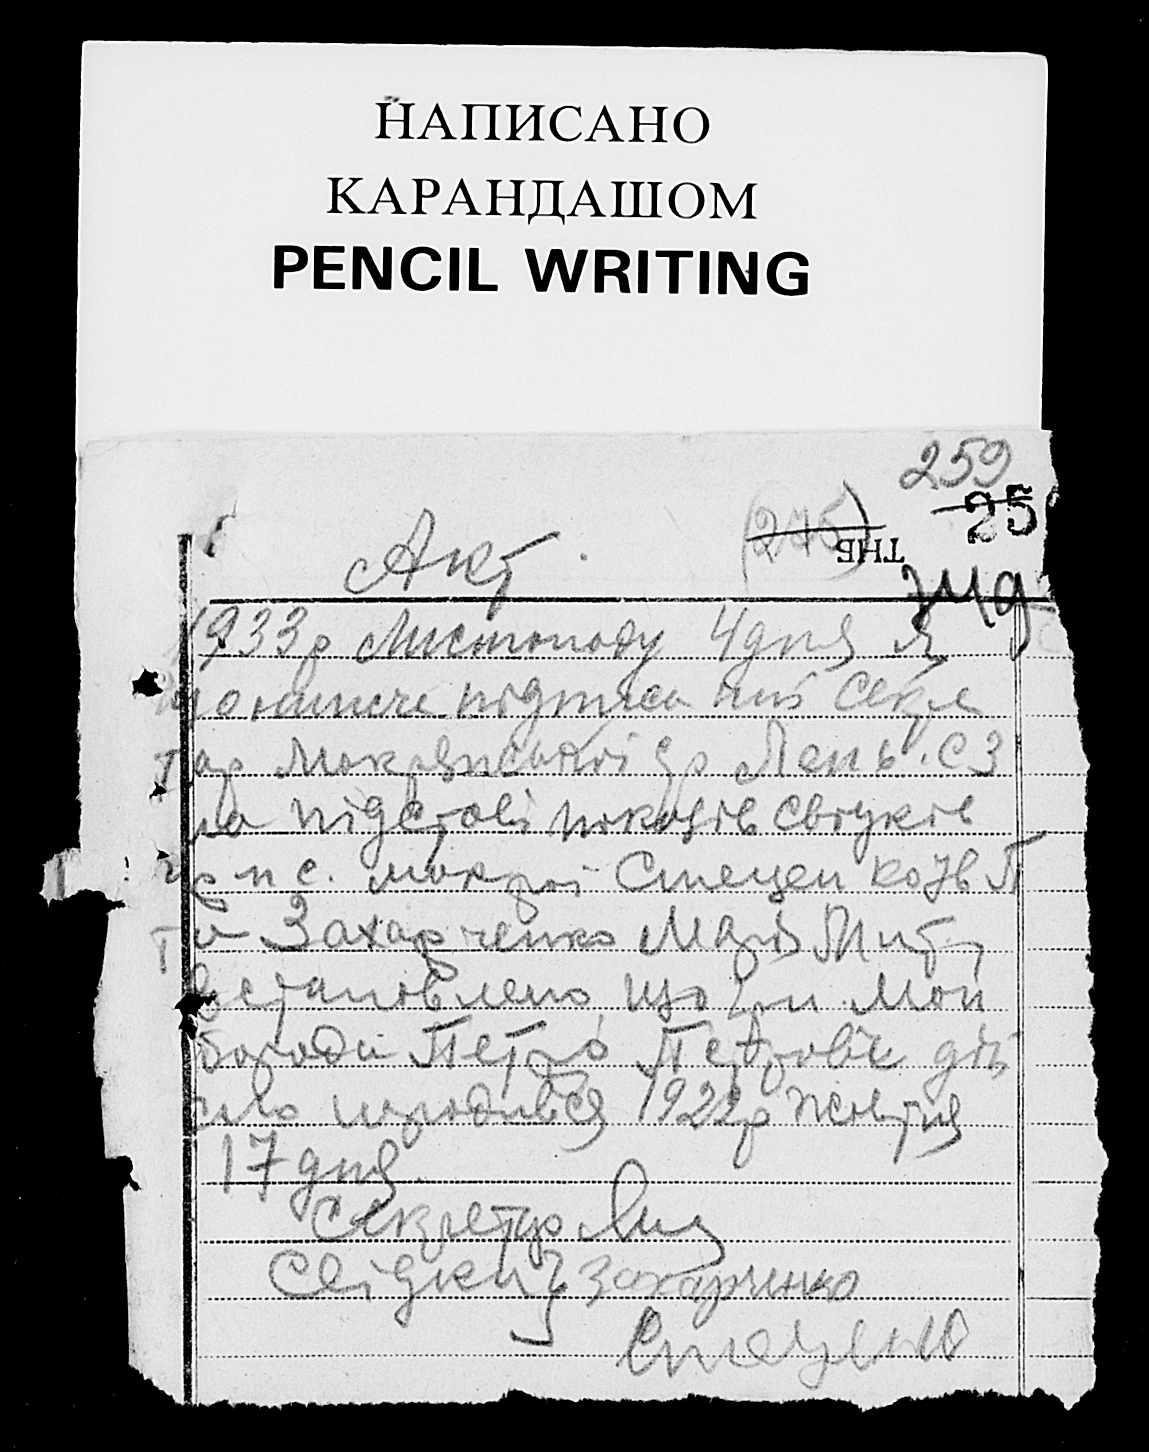 НАПИСАНО
КАРАНДАШОМ
PENCIL WRITING
259
25
(275)
ТНБ
Акт
1933р Листопаду 4 дня я
що нижче підписа ний Секре
тар Мокрянської с/р Лень. СЗ
на підставі показів свідків
гр п с. мокрої Стецен ко
та Захарченко Марія
встановлено що гр-н
Петро Петрович дій
сно народився 1922р жовтня
17 дня
Секретар
Свідки Захарченко
Стеценко